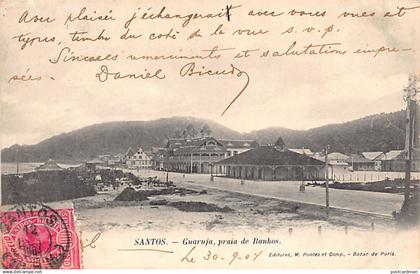 Avec plaisir j'échangerait avec vous vues et
types, timbu du coté de la vue s. v. p.
Sincères remerciments et salutation empre-
sées.
Daniel
SANTOS. — Guaruja, praia de Banhos.
Editores, M. Pontes et Comp., — Bazar de Paris.
Le 30-9-04